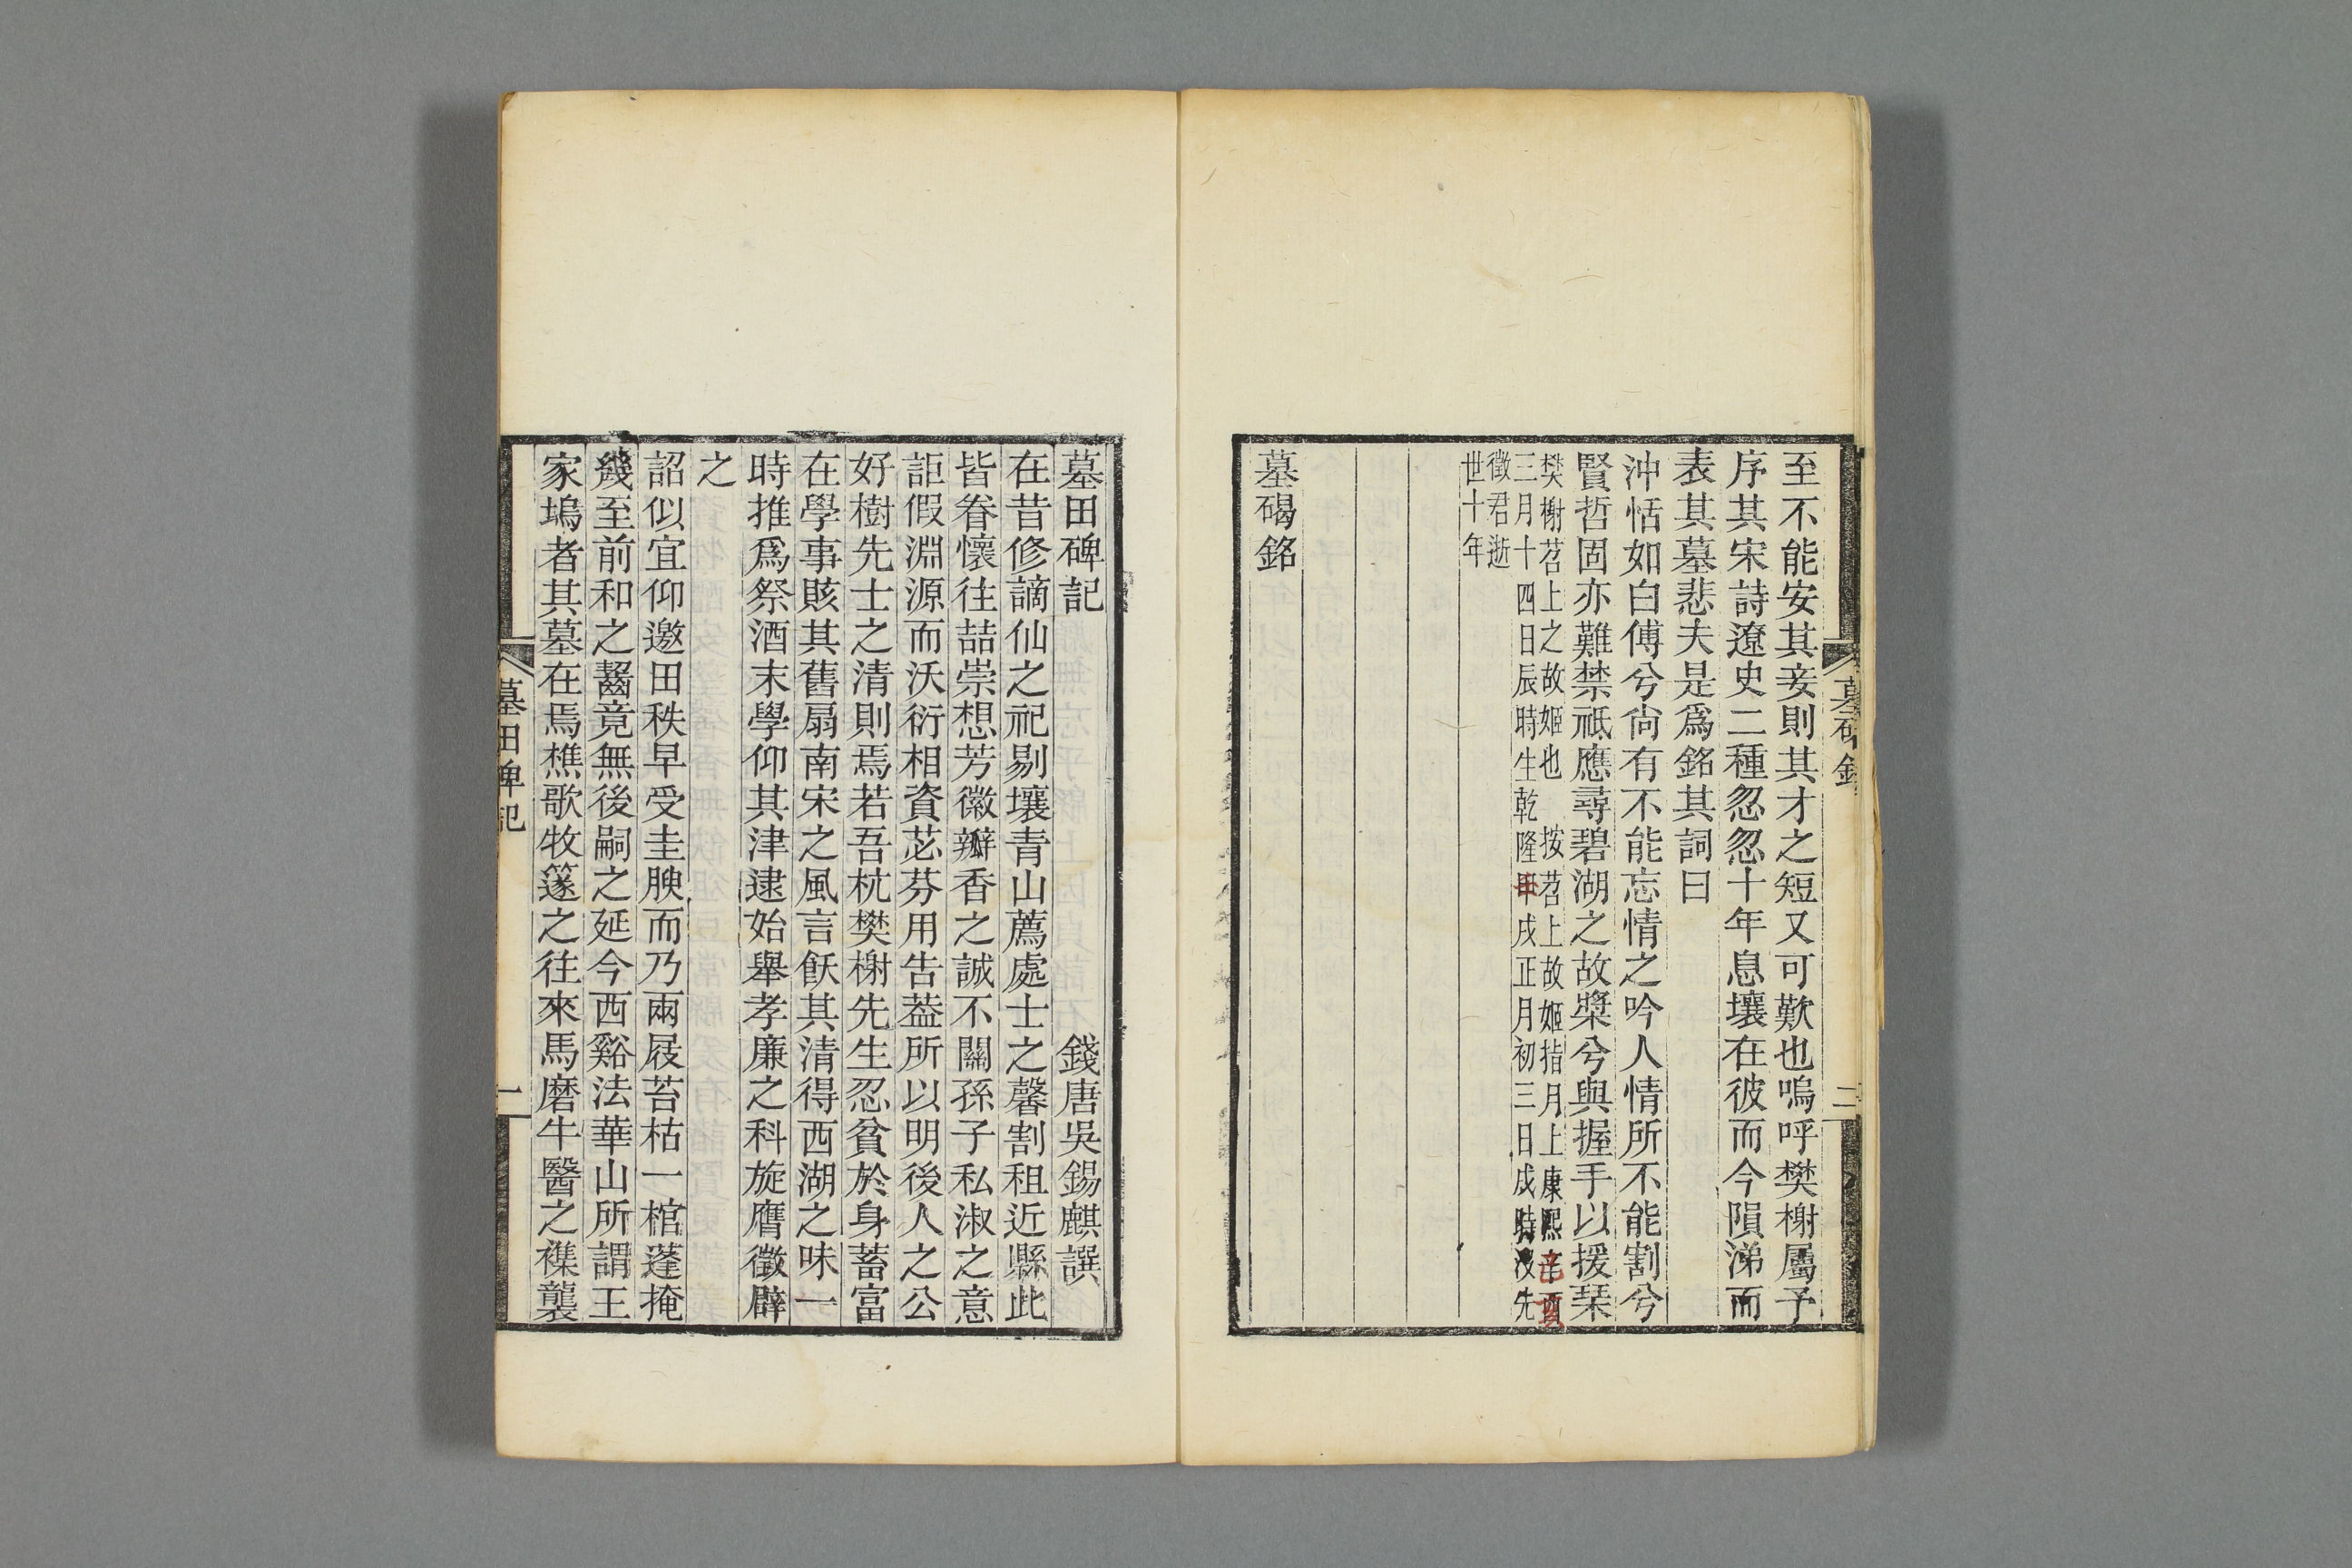 至不能安其妾則其才之短又可歎也嗚呼樊榭屬予
序其宋詩遼史二種忽忽十年息壤在彼而今隕涕而
表其墓悲夫是爲銘其詞曰
沖恬如白傅兮尙有不能忘情之吟人情所不能割兮
賢哲固亦難禁祗應尋碧湖之故槳兮與握手以援琹
樊榭苕上之故姬也 按苕上故姬指月上康熙
三月十四日辰時生乾隆戌正月初三日戌時沒先
徵君逝
世十年
墓碣銘
墓碣銘
二
墓田碑記 錢唐吳錫麒譔
在昔修謫仙之祀剔壤青山薦處士之馨割租近縣此
皆眷懷往喆崇想芳徽瓣香之誠不關孫子私淑之意
詎假淵源而沃衍相資苾芬用告葢所以明後人之公
好樹先士之清則焉若吾杭樊榭先生忍貧於身蓄富
在學事賅其舊扇南宋之風言飫其清得西湖之味一
時推爲祭酒末學仰其津逮始舉孝廉之科旋膺徵辟
之
詔似宜仰邀田秩早受圭腴而乃兩屐苔枯一棺蓬掩
幾至前和之齧竟無後嗣之延今西谿法華山所謂王
家塢者其墓在焉樵歌牧篴之往來馬磨牛醫之襍襲
墓田碑記
一